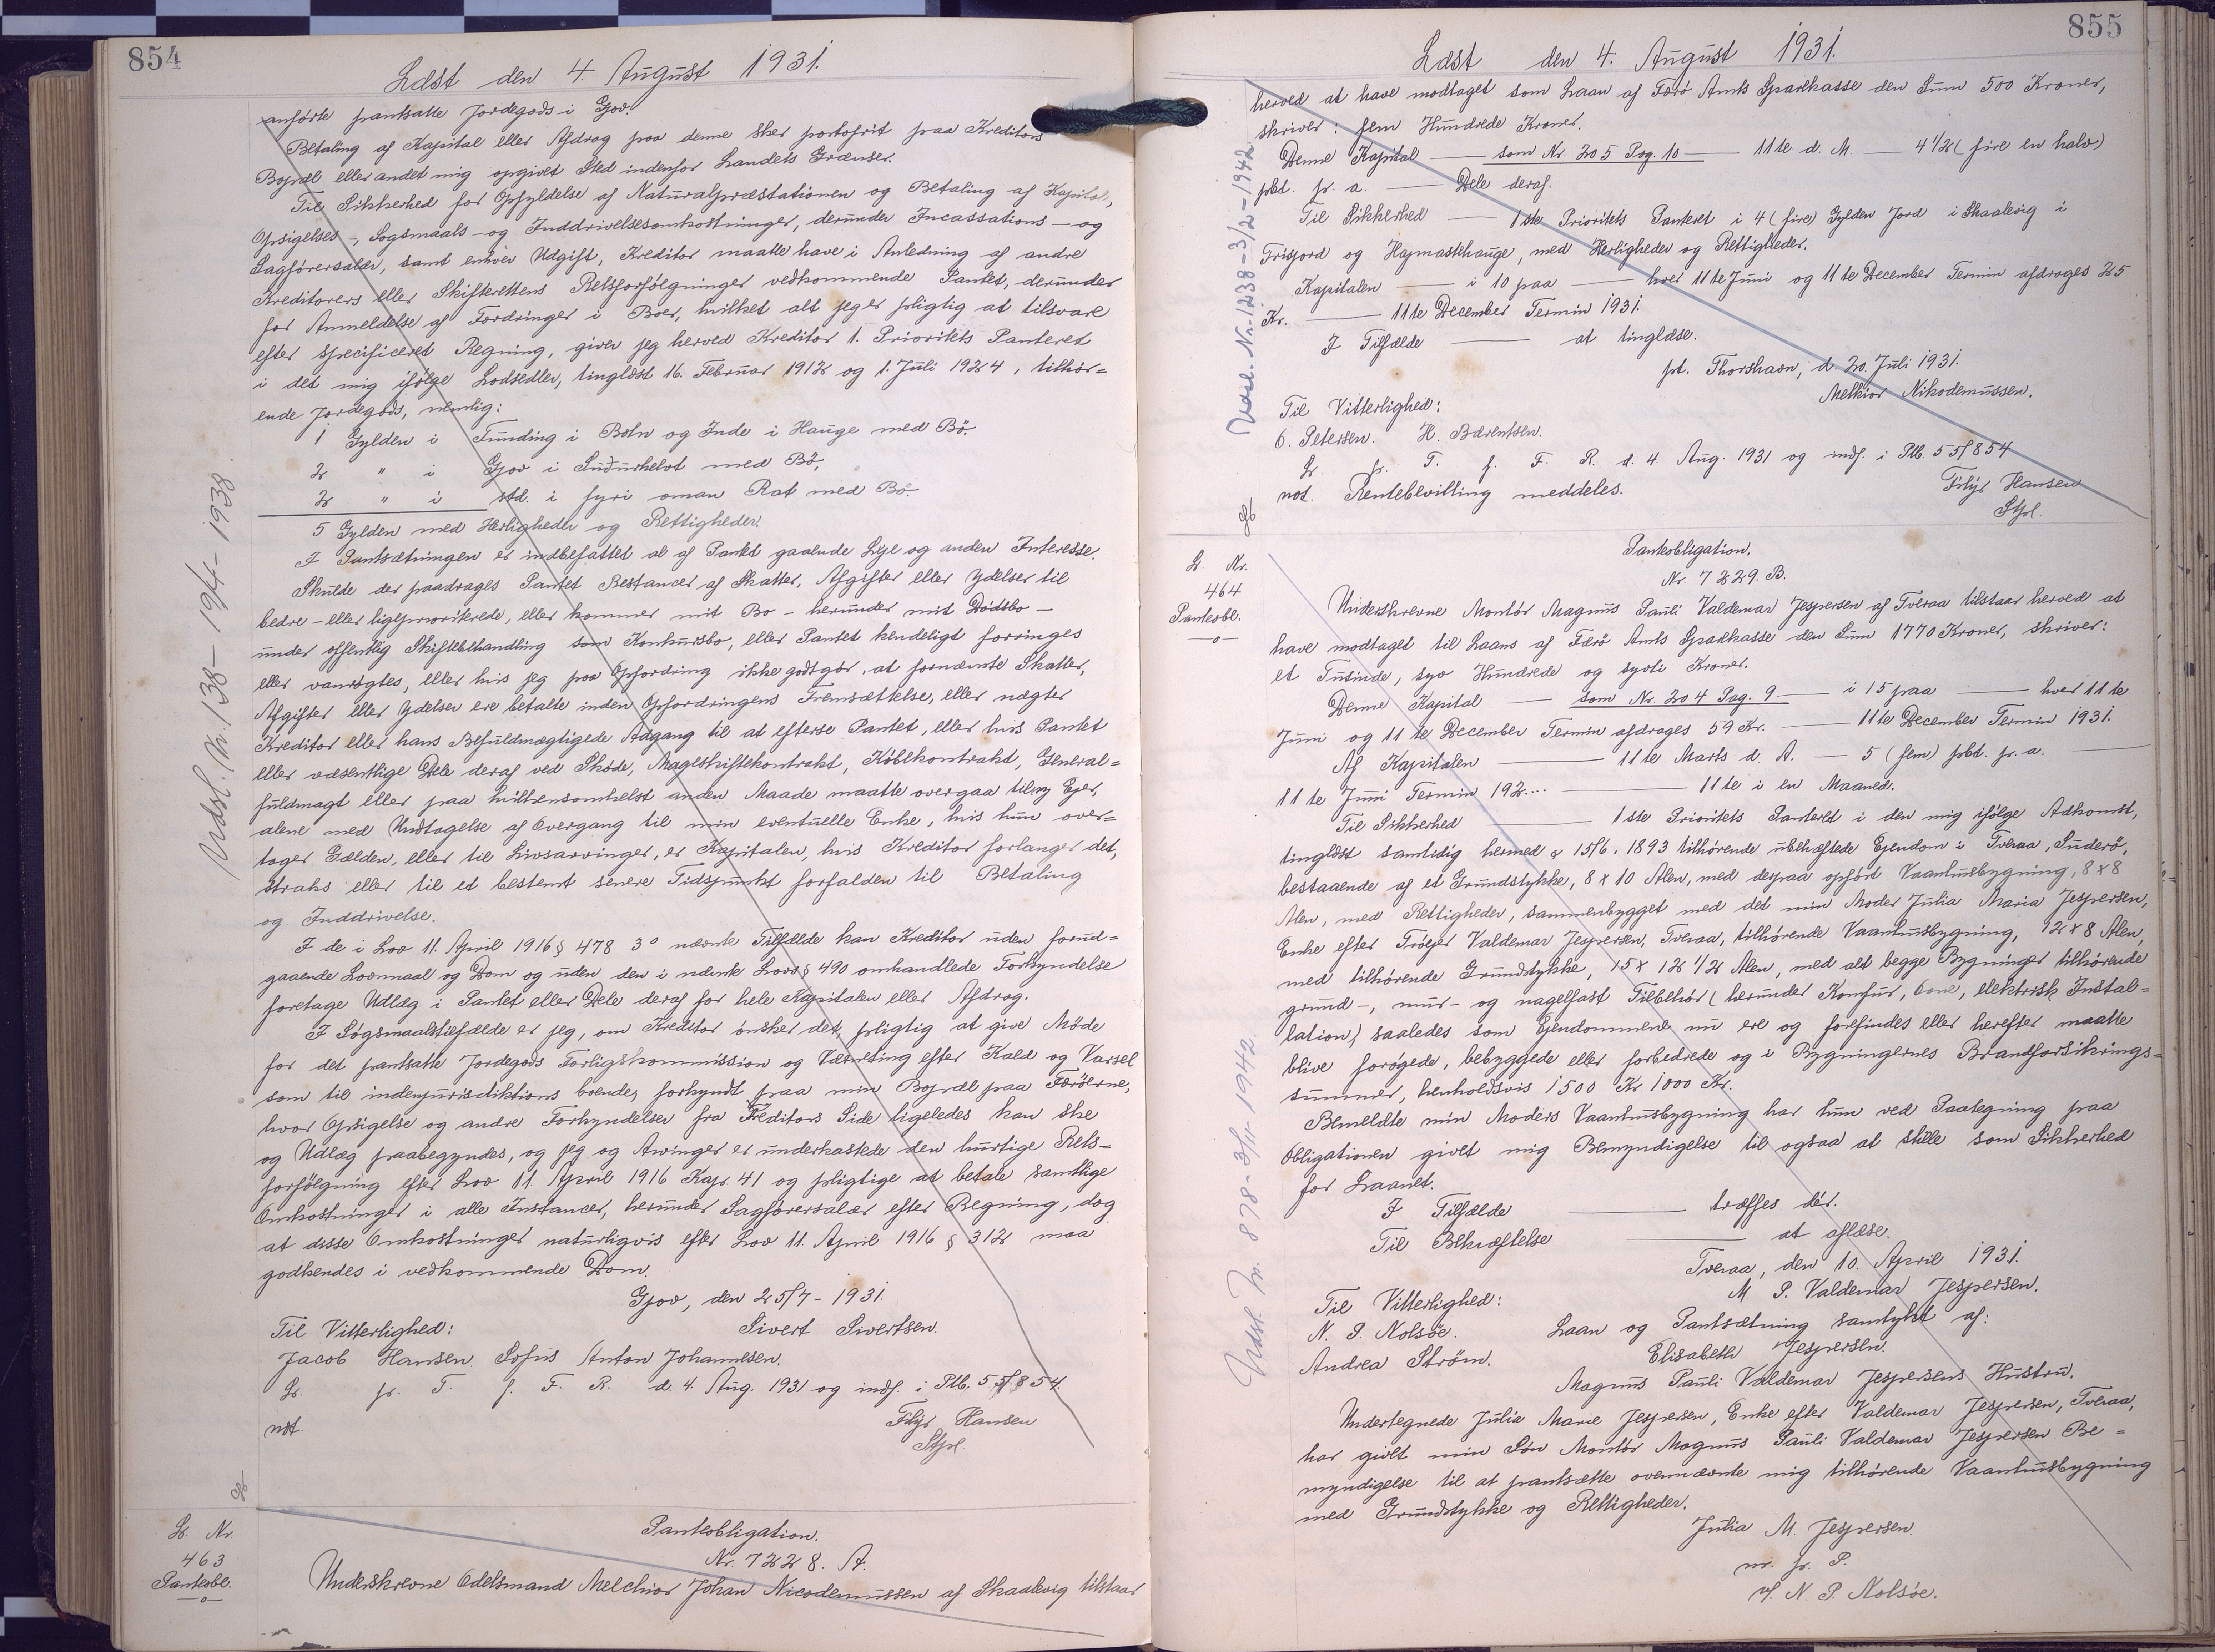 854
Ldst den 4. August 1931.
anførte pantsatte Jordegods i Gjov.
Betaling af Kapital eller Afdrag paa denne sker portofrit paa Kreditors
Bopæl eller andet mig opgivet Sted indenfor Landets Grænser.
Til Sikkerhed for Opfyldelse af Naturalpræstationen og Betaling af Kapital,
Opsigelses-, Sogsmaals- og Inddrivelsesomkostninger, derunder Incassations- og
Sagførersalær, samt enhver Udgift, Kreditor maatte have i Anledning af andre
Kreditorers eller Skifterettens Retsforfølgninger vedkommende Pantet, derunder
for Anmeldelse af Fordringer i Boer, hvilket alt jeg er pligtig at tilsvare
efter specificeret Regning, giver jeg herved Kreditor 1. Prioritets Panteret
i det mig ifølge Lodsedler, tinglæst 16. Februar 1912 og 1. Juli 1924, tilhør=
ende Jordegods, nemlig:
1 Gylden i Funding i Botn og Inde i Hauge med Bø.
2 " i Gjov i Suðurhelvt med Bø,
2 " i std. i fyri oman Rat med Bø.
5 Gylden med Herligheder og Rettigheder.
I Pantsætningen er indbefattet al af Pantet gaaende Leje og anden Interesse.
Skulde der paadrages Pantet Restancer af Skatter, Afgifter eller Ydelser til
bedre- eller ligeprioriterede, eller kommer mit Bo - herunder mit Dødsbo -
under offentlig Skiftebehandling som Konkursbo, eller Pantet kendeligt forringes
eller vanrøgtes, eller hvis jeg paa Opfordring ikke godtgør, at fornævnte Skatter,
Afgifter eller Ydelser ere betalte inden Opfordringens Fremsættelse, eller nægter
Kreditor eller hans Befuldmægtigede Adgang til at efterse Pantet, eller hvis Pantet
eller væsentlige Dele deraf ved Skøde, Mageskiftekontrakt, Købekontrakt, General=
fuldmagt eller paa hvilkensomhelst anden Maade maatte overgaa til ny Ejer,
alene med Undtagelse af Overgang til min eventuelle Enke, hvis hun over=
tager Gælden, eller til Livsarvinger, er Kapitalen, hvis Kreditor forlanger det,
straks eller til et bestemt senere Tidspunkt forfalden til Betaling
og Inddrivelse.
I de i Lov 11. April 1916 § 478 3° nævnte Tilfælde kan Kreditor uden forud=
gaaende Lovmaal og Dom og uden den i nævnte Lovs § 490 omhandlede Forkyndelse
foretage Udlæg i Pantet eller Dele deraf for hele Kapitalen eller Afdrag.
I Søgsmaalstilfælde er jeg, om Kreditor ønsker det, pligtig at give Møde
for det pantsatte Jordegods Forligskommission og Værneting efter Kald og Varsel
som til indenjurisdiktions boende, forkyndt paa min Bopæl paa Færøerne,
hvor Opsigelse og andre Forkyndelser fra Kreditors Side ligeledes kan ske
og Udlæg paabegyndes, og jeg og Arvinger er underkastede den hurtige Rets=
forfølgning efter Lov 11. April 1916 Kap. 41 og pligtige at betale samtlige
Omkostninger i alle Instancer, herunder Sagførersalær efter Regning, dog
at disse Omkostninger naturligvis efter Lov 11. April 1916 § 312 maa
godkendes i vedkommende Dom.
Gjov, den 25/7 - 1931.
Til Vitterlighed: Sivert Sivertsen.
Jacob Hansen. Sofus Anton Johannesen.
L. pr. T. f. F. R. d. 4. Aug. 1931 og indf. i Ptb. 5 5/854.
not. Filip Hansen
Stful.
Udsl. Nr. 138 - 19/4 - 1938.
L. Nr.
463
Panteobl.
-o-
Panteobligation.
Nr. 7228. A.
Underskrevne Odelsmand Melchior Johan Nicodemussen af Skaalevig tilstaar
855
Ldst den 4. August 1931.
herved at have modtaget som Laan af Færø Amts Sparekasse den Sum 500 Kroner,
skriver: fem Hundrede Kroner.
Denne Kapital — som Nr. 205 Pag. 10 — 11te d. M. — 4 1/2 (fire en halv)
pCt. pr. a. — Dele deraf.
Til Sikkerhed — 1ste Prioritets Panteret i 4 (fire) Gylden Jord i Skaalevig i
Trisjord og Hapmastehauge, med Herligheder og Rettigheder.
Kapitalen — i 10 paa — hver 11te Juni og 11te December Termin afdrages 25
Kr. — 11te December Termin 1931.
I Tilfælde — at tinglæse.
pt. Thorshavn, d. 20. Juli 1931.
Melkior Nikodemussen.
Til Vitterlighed:
O. Petersen. H. Bærentsen.
L. pr. T. f. F. R. d. 4. Aug. 1931 og indf. i Ptb. 5 5/854
not. Rentebevilling meddeles. Filip Hansen
Stful.
Udsl. Nr. 1238 - 3/2 - 1942
L. Nr.
464
Panteobl.
-o-
Panteobligation.
Nr. 7229. B.
Underskrevne Montør Magnus Pauli Valdemar Jespersen af Tveraa tilstaar herved at
have modtaget til Laans af Færø Amts Sparekasse den Sum 1770 Kroner, skriver:
et Tusinde, syv Hundrede og syvti Kroner.
Denne Kapital — som Nr. 204 Pag. 9 — i 15 paa — hver 11te
Juni og 11te December Termin afdrages 59 Kr. — 11te December Termin 1931.
Af Kapitalen — 11te Marts d. A. — 5 (fem) pCt. pr. a. —
11te Juni Termin 192.... — 11te i en Maaned.
Til Sikkerhed — 1ste Prioritets Panteret i den mig ifølge Adkomst,
tinglæst samtidig hermed & 15/6. 1893 tilhørende ubehæftede Ejendom i Tveraa, Suderø,
bestaaende af et Grundstykke, 8 x 10 Alen, med derpaa opført Vaaningsbygning, 8 x 8
Alen, med Rettigheder, sammenbygget med det min Moder Julia Maria Jespersen,
Enke efter Trøejer Valdemar Jespersen, Tveraa, tilhørende Vaanhusbygning, 12 x 8 Alen,
med tilhørende Grundstykke, 15 x 12 1/2 Alen, med alt begge Bygninger tilhørende
grund-, mur- og nagelfast Tilbehør (herunder Komfur, Ovne, elektrisk Instal=
lation) saaledes som Ejendommene nu ere og forefindes eller herefter maatte
blive forøgede, bebyggede eller forbedrede og i Bygningernes Brandforsikrings=
summer, henholdsvis 1500 Kr. 1000 Kr.
Bemeldte min Moders Vaanhusbygning har hun ved Paategning paa
Obligationen givet mig Bemyndigelse til ogsaa at stille som Sikkerhed
for Laanet.
I Tilfælde — træffes dér.
Til Bekræftelse — at aflæse.
Tveraa, den 10. April 1931.
M P. Valdemar Jespersen.
Til Vitterlighed:
N. P. Nolsøe. Laan og Pantsætning samtykt af:
Andrea Strøm. Elisabeth Jespersen.
Magnus Pauli Valdemar Jespersens Hustru.
Undertegnede Julia Marie Jespersen, Enke efter Valdemar Jespersen, Tveraa,
har givet min Søn Montør Magnus Pauli Valdemar Jespersen Be=
myndigelse til at pantsætte ovennævnte mig tilhørende Vaanhusbygning
med Grundstykke og Rettigheder.
Julia M. Jespersen.
m. f. P.
v/ N. P. Nolsøe.
Udsl. Nr. 878 - 3/11 - 1942